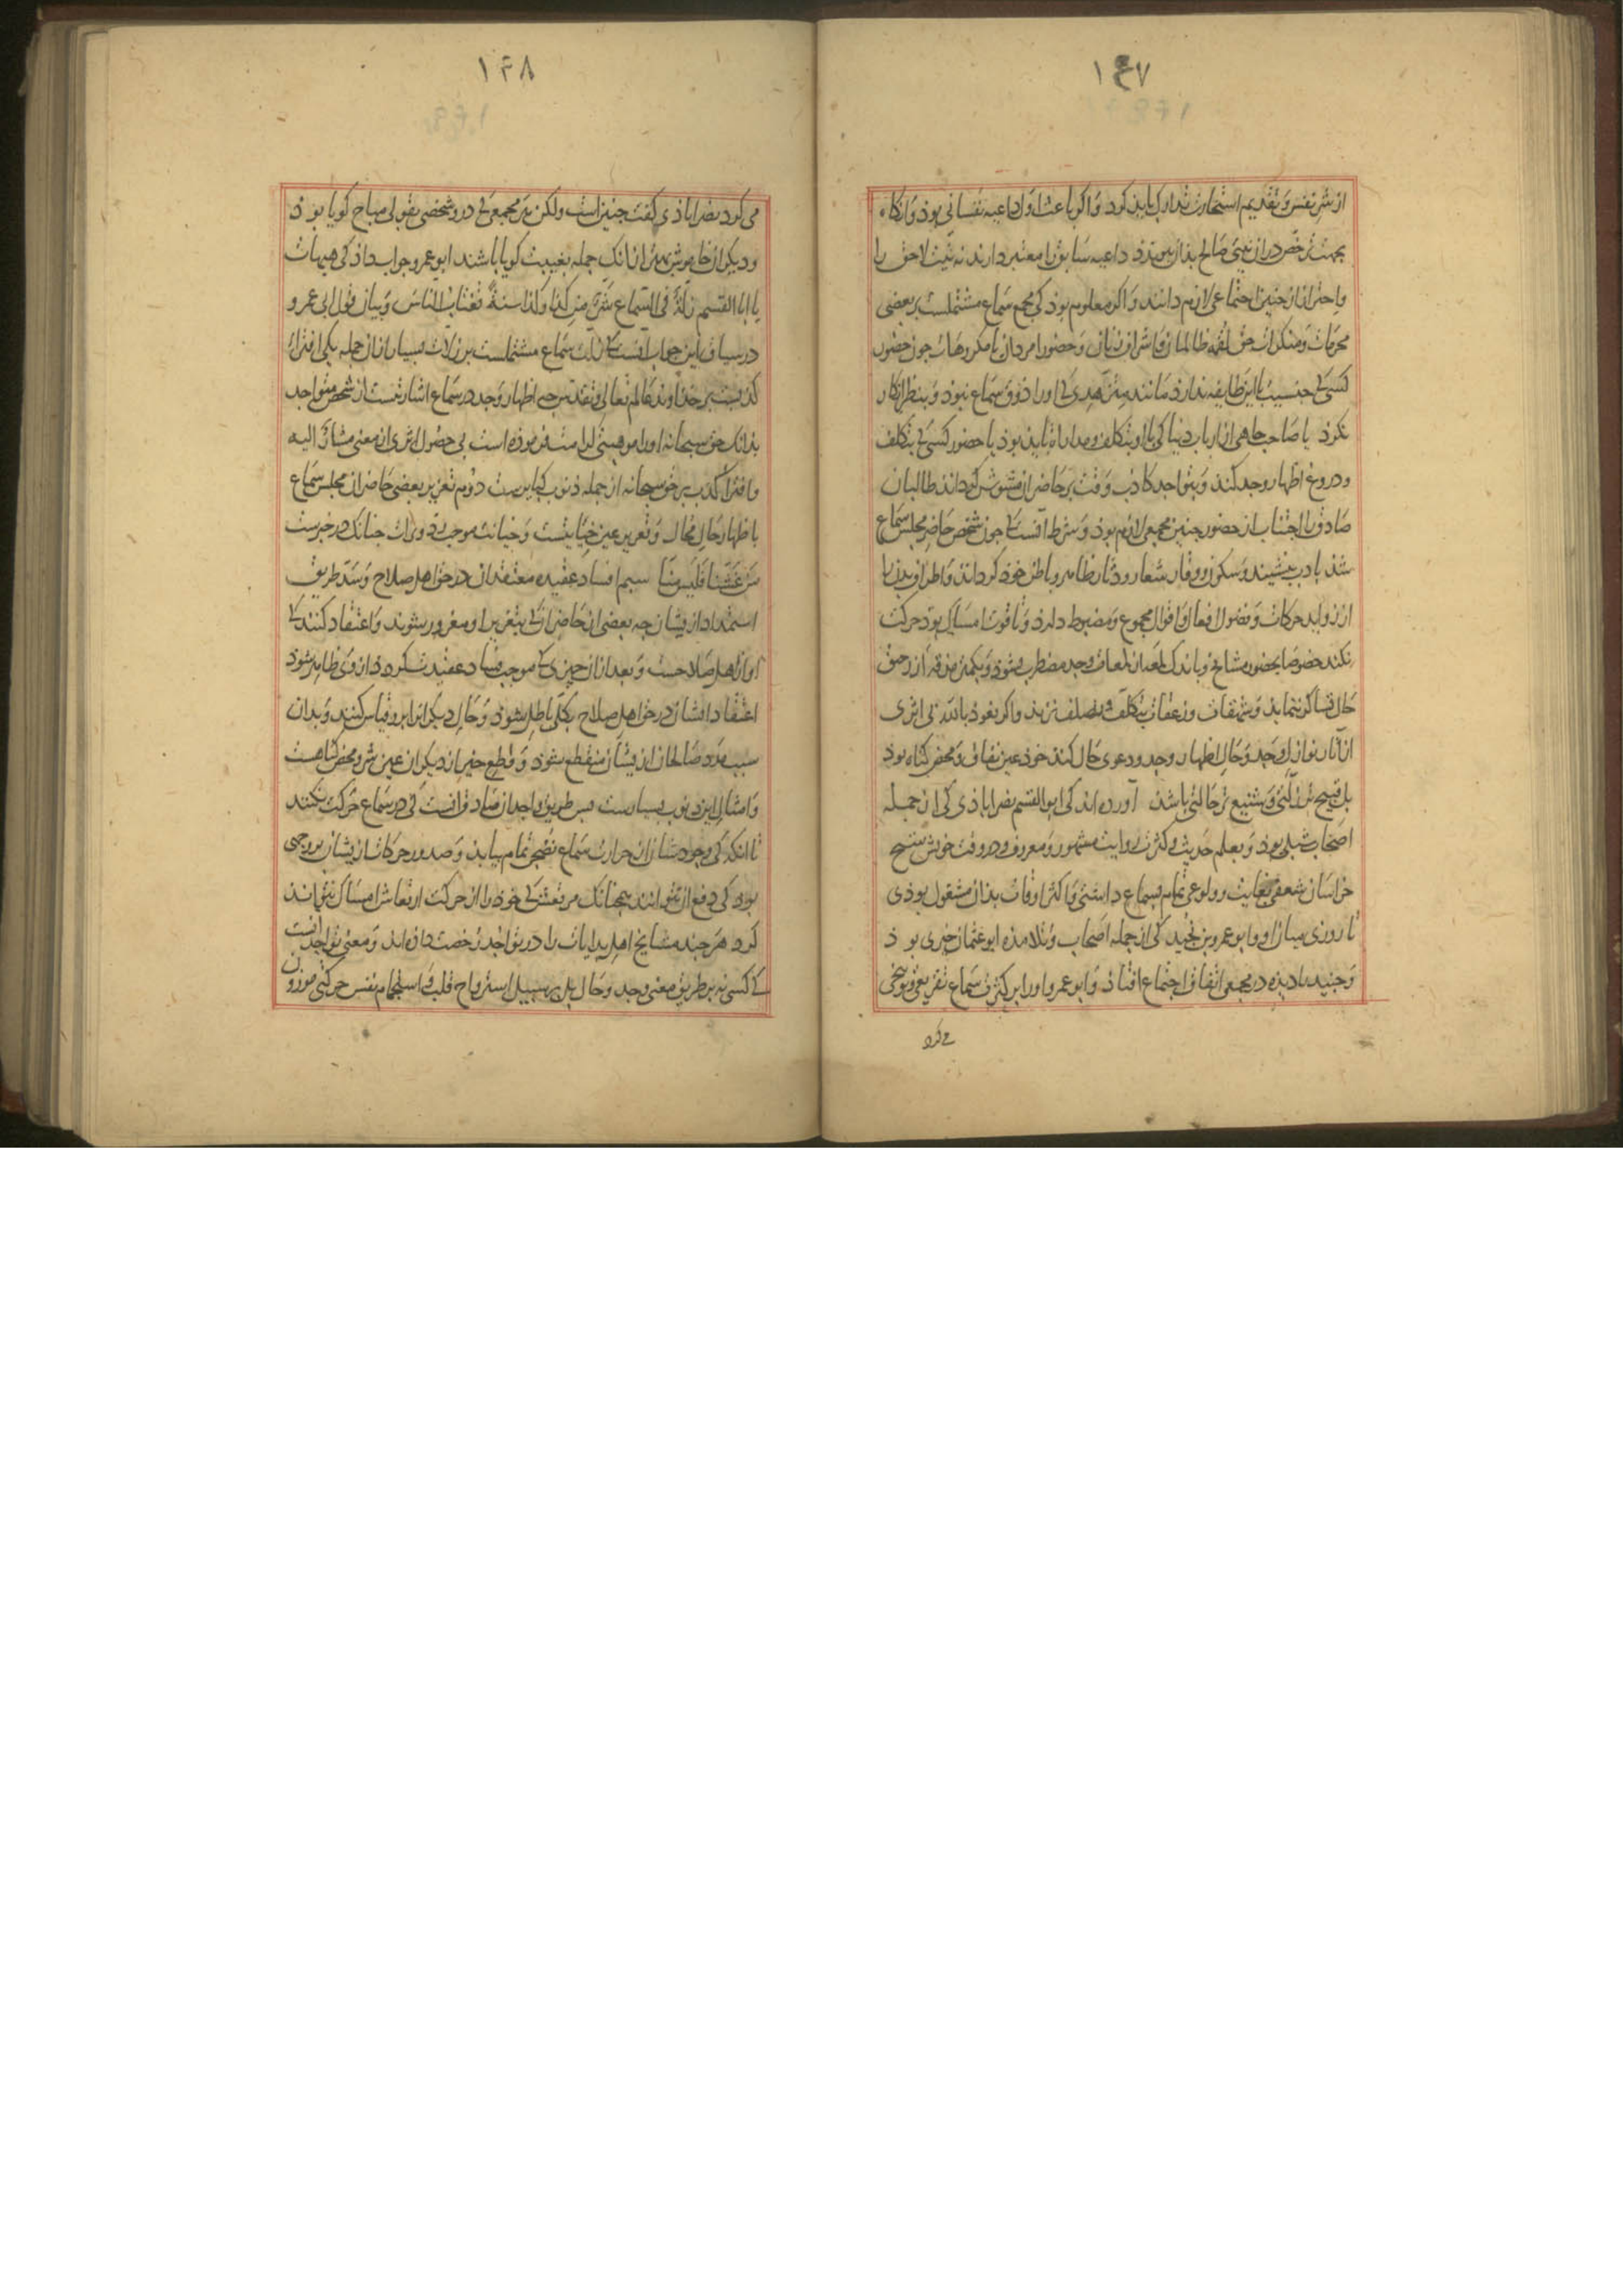 ۱۴۷
از شر نفس و تقدیم استخارت تدارک باید کرد و اگر باعث اول داعیه نفسانی بود و انگاه
بجهت ترخص در ان نیتی صالح بذان پیوندد داعیه سابق را معتبر دارند نه نیت لاحق را
و احتراز از جنین اجتماعی لازم دانند و اگر معلوم بود کی مجمع سماع مشتملست بر بعضی
محرمات و منکرات جون لقمه ظالمان و اشراف زنان و حضور امردان یا مکروهات جون حضور
کسی کی جنسیت با این طایفه ندارد مانند متزهدی کی او را ذوق سماع نبود و بنظر انکار
نکرد یا صاحب جاهی از ارباب دنیا کی با او بتکلف و مداراة باید بود یا حضور کسی کی بتکلف
و دروغ اظهار وجد کند و بتواجد کاذب وقت بر حاضران مشوش کرداند طالبان
صادق را اجتناب از حضور جنین مجمعی لازم بود و شرط آنست کی جون شخص حاضر مجلس سماع
شد بادب بنشیند و سکون و وقار شعار و دثار ظاهر و باطن خود کرداند و اطراف بدن را
از زواید حرکات و فضول افعال و اقوال مجموع و مضبوط دارد و تا قوت امساک بود حرکت
نکند خصوصا بحضور مشایخ و باندک لمعه از لمعات وجد مضطرب نشود و بکمتر مذقه از رحیق
حال تساکر ننماید و شهقات و زعقات بتکلف و تصلف نزند و اگر نعوذ بالله بی اثری
از آثار نوازل وجد و حال اظهار وجد و دعوی حال کند خود عین نفاق و محض کناه بود
بل قبیح ترزلتی و شنیع تر حالتی باشد آورده اند کی ابو القسم نصراباذی کی از جمله
اصحاب شبلی بود و بعلم حدیث و کثرت روایت مشهور و معروف و در وقت خویش شیخ
خراسان شعفی بغایت و ولوعی تمام بسماع داشتی و اکثر اوقات بذان مشغول بودی
تا روزی میان او و ابو عمرو بن نجید کی از جمله اصحاب و تلامذه ابو عثمان حیری بود
و جنید را دیده در مجمعی اتفاق اجتماع افتاد و ابو عمرو او را بر کثرت سماع تقریعی و توبیخی
می کرد
۱۴۸
می کرد نصراباذی کفت جنین است ولکن هر مجمعی کی درو شخصی بقولی مباح کویا بود
و دیکران خاموش بهتر از انک جمله بغیبت کویا باشند ابو عمرو جواب داذ کی هیهات
یا ابا القسم زلة فی السماع شر من کذا و کذا سنة تغتاب الناس و بیان قول ابی عمرو
در سیاق این جواب آنست کی زلت سماع مشتملست بر زلات بسیار از ان جمله یکی افتراء
کذبست بر خداوند عالم تعالی و تقدس جه اظهار وجد در سماع اشارتست از شخص متواجد
بذانک حق سبحانه او را موهبتی ارزانی فرموده است بی حصول اثری از معنی مشار الیه
و افتراء کذب بر حق سبحانه از جمله ذنوب کبایرست دوم تغریر بعضی حاضران مجلس سماع
باظهار حال محال و تغریر عین خیانتست و خیانت موجب جنانک در خبرست
من غشنا فلیس منا سیم افساد عقیده معتقدان در حق اهل صلاح و سد طریق
استمداد ازیشان جه بعضی از حاضران کی بتغریر او مغرور شوند و اعتقاد کنند کی
او از اهل صلاحست و بعد از ان جیزی کی موجب فساد عقیدت کردد از وی ظاهر شود
اعتقاد ایشان در حق اهل صلاح بکلی باطل شود و حال دیکران برو قیاس کنند و بدان
سبب مدد صالحان ازیشان منقطع شود و قطع خیر از دیکران عین شر و محض کناهست
و امثال این ذنوب بسیارست پس طریق واجدان صادق آنست کی در سماع حرکت نکنند
تا انکه کی وجودشان از حرارت سماع نضجی تمام بیابد و صدور حرکات ازیشان بر وجهی
بود کی دفع آن نتوانند همجنانک مرتعش کی خود را از حرکت ارتعاش امساک نتواند
کرد هر جند مشایخ اهل بدایات را در تواجد رخصت داذه اند و معنی تواجد آنست
کی کسی نه بر طریق معنی وجد و حال بل بر سبیل استرواح قلب و استجمام نفس حرکتی موزون